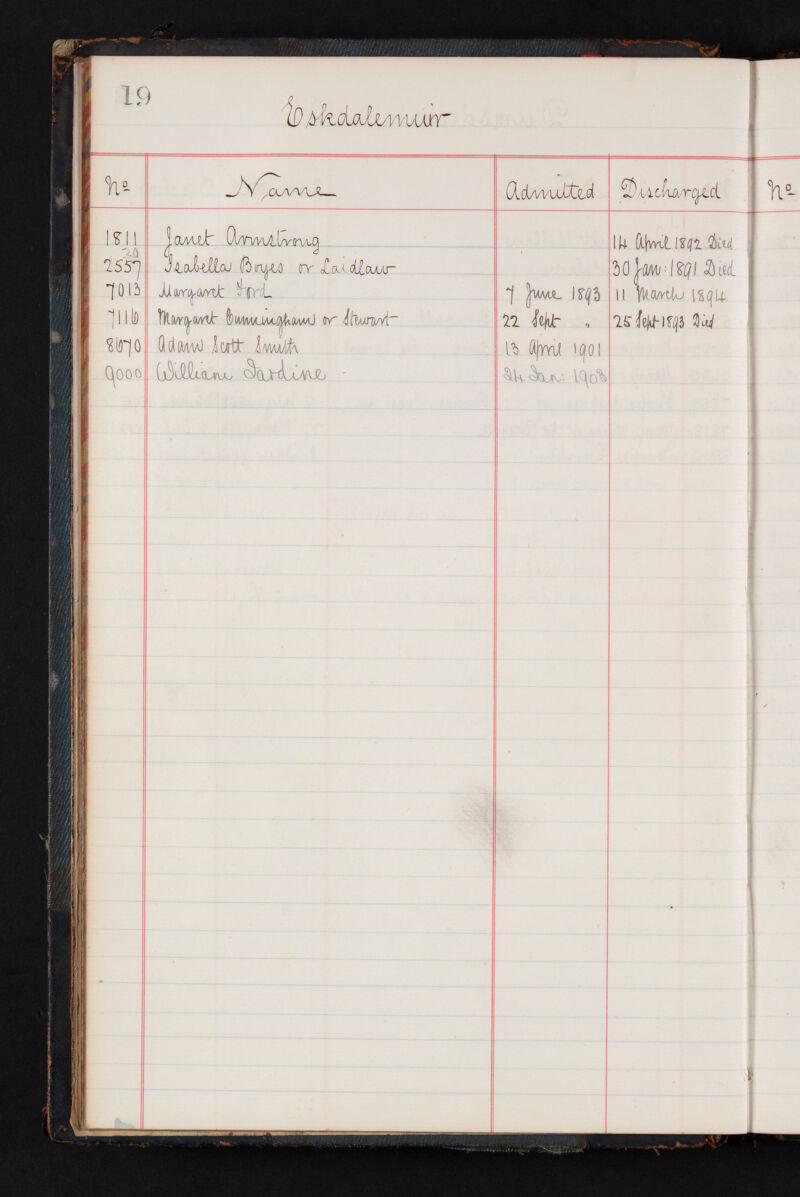 19
Eskdalemuir
No Name Admitted Discharged No
1811 Janet Armstrong 14 April 1892 Died
2557 Isabella Boyes or Laidlaw 30 Jan: 1891 Died
7013 Margaret Ford 7 June 1893 11 March 1894
7116 Margaret Cunningham or Stewart 22 Sept " 25 Sept 1893 Died
8670 Adam Scott Smith 13 April 1901
9000 William Jardine - 24 Jan: 1903